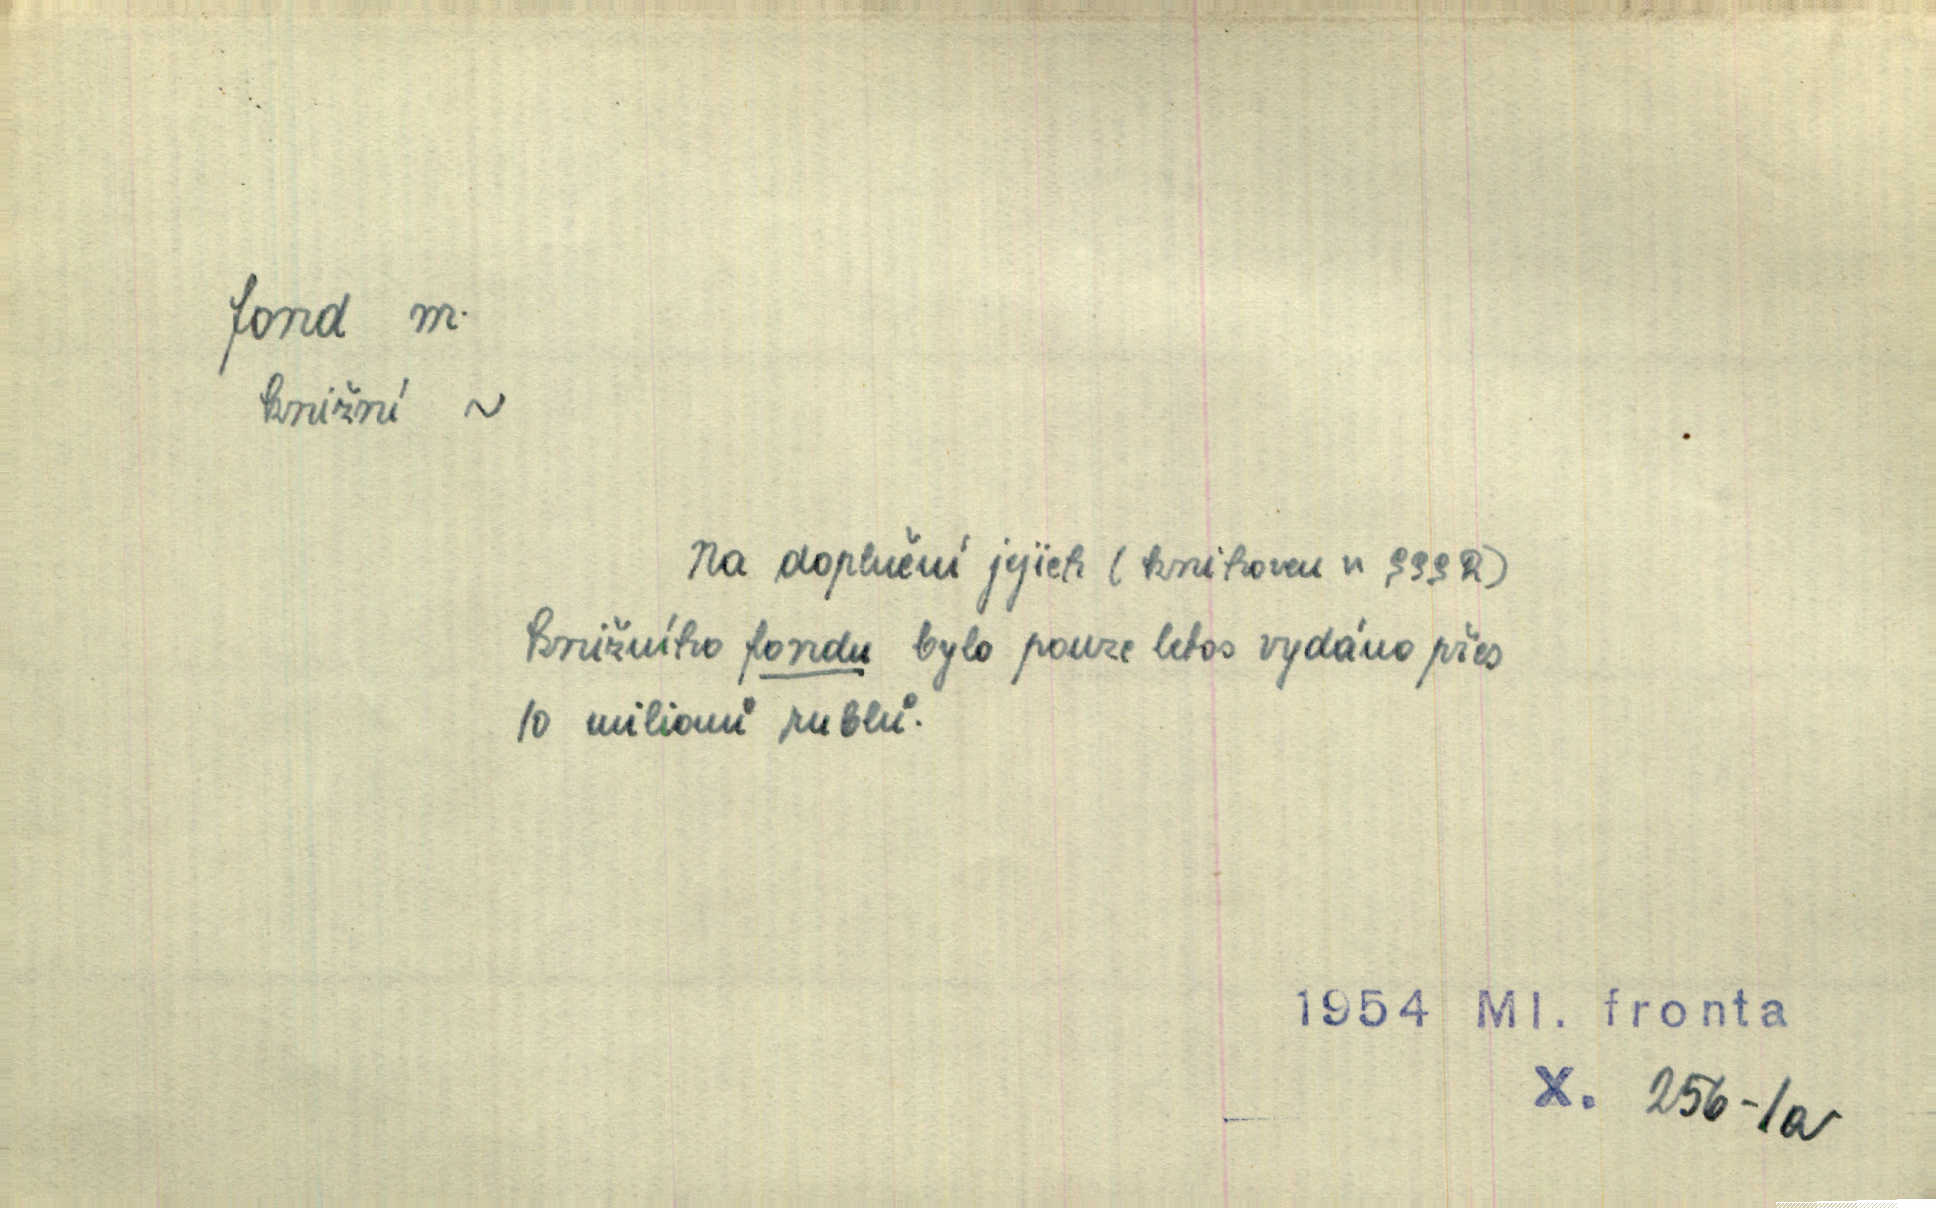 fond m.
knižní ~
Na doplnění jejich (knihoven v SSSR)
knižního fondu bylo pouze letos vydáno přes
10 milionů rublů.
1954 Ml. fronta
X. 256-1a